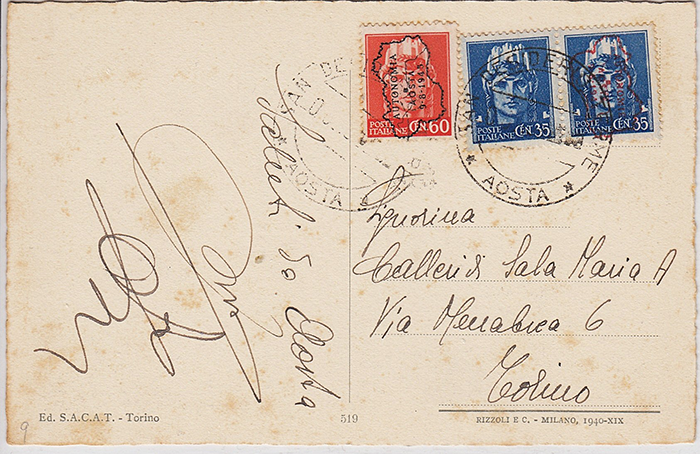 AUTONOMA
AOSTA
9-8-1944
POSTE
ITALIANE
CEN. 60
POSTE
ITALIANE
CEN. 35
POSTE
ITALIANE
CEN. 35
AOSTA
SAN DESIDER TERME
AOSTA
Saluti da Aosta
Signorina
Calleri di Sala Maria A
Via Menabrea 6
Torino
Ed. S.A.C.A.T. - Torino
519
RIZZOLI E C. - MILANO, 1940-XIX
9